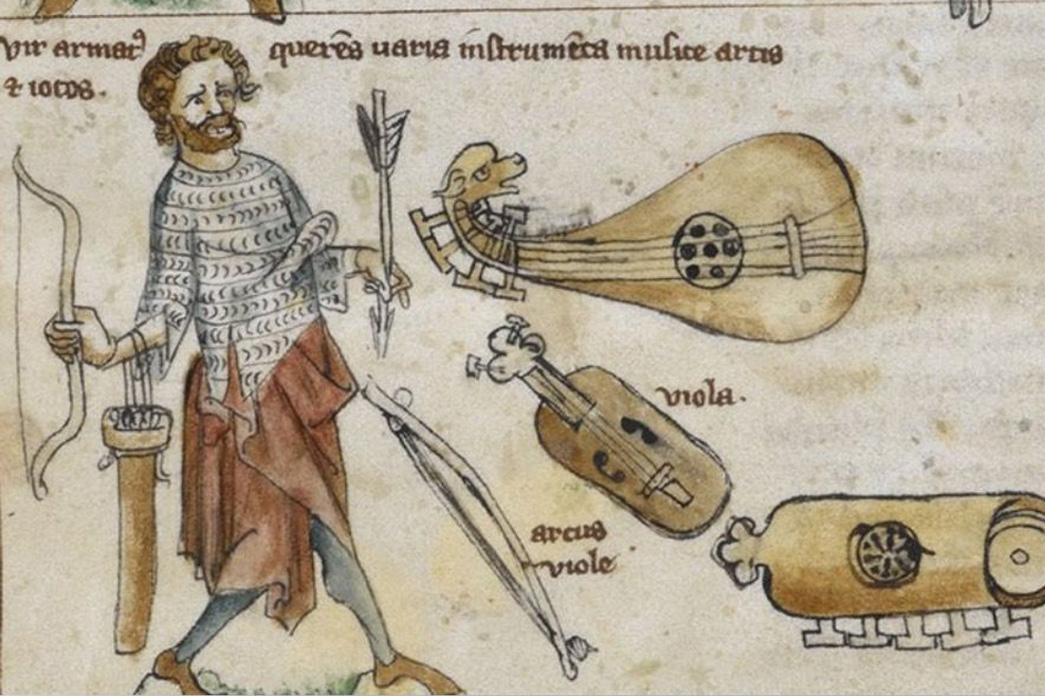 vir armatꝰ querēs uaria īnstrumēta musice artis
⁊ iocos.
viola.
arcus
viole